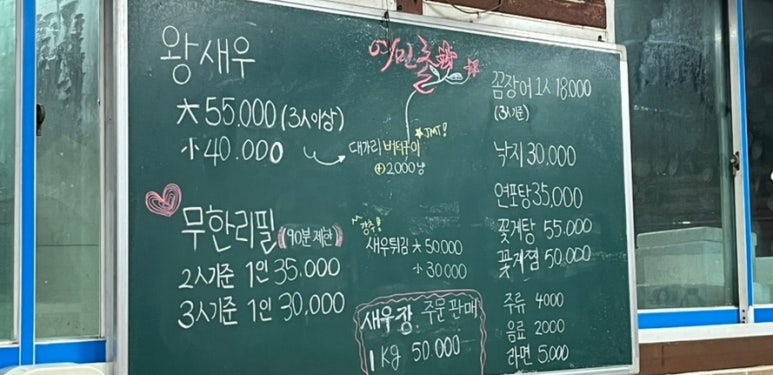 어민들
왕새우
大 55.000 (3人이상)
小 40.000
대가리 버터구이 JMT!
⊕2000냥
무한리필 (90분 제한)
2人기준 1인 35.000
3人기준 1인 30,000
강추!
새우튀김 大 50000
小 30000
새우장 주문판매
1kg 50.000
꼼장어 1人 18,000
(3人기준)
낙지 30,000
연포탕 35,000
꽃게탕 55.000
꽃게찜 50,000
주류 4000
음료 2000
라면 5,000